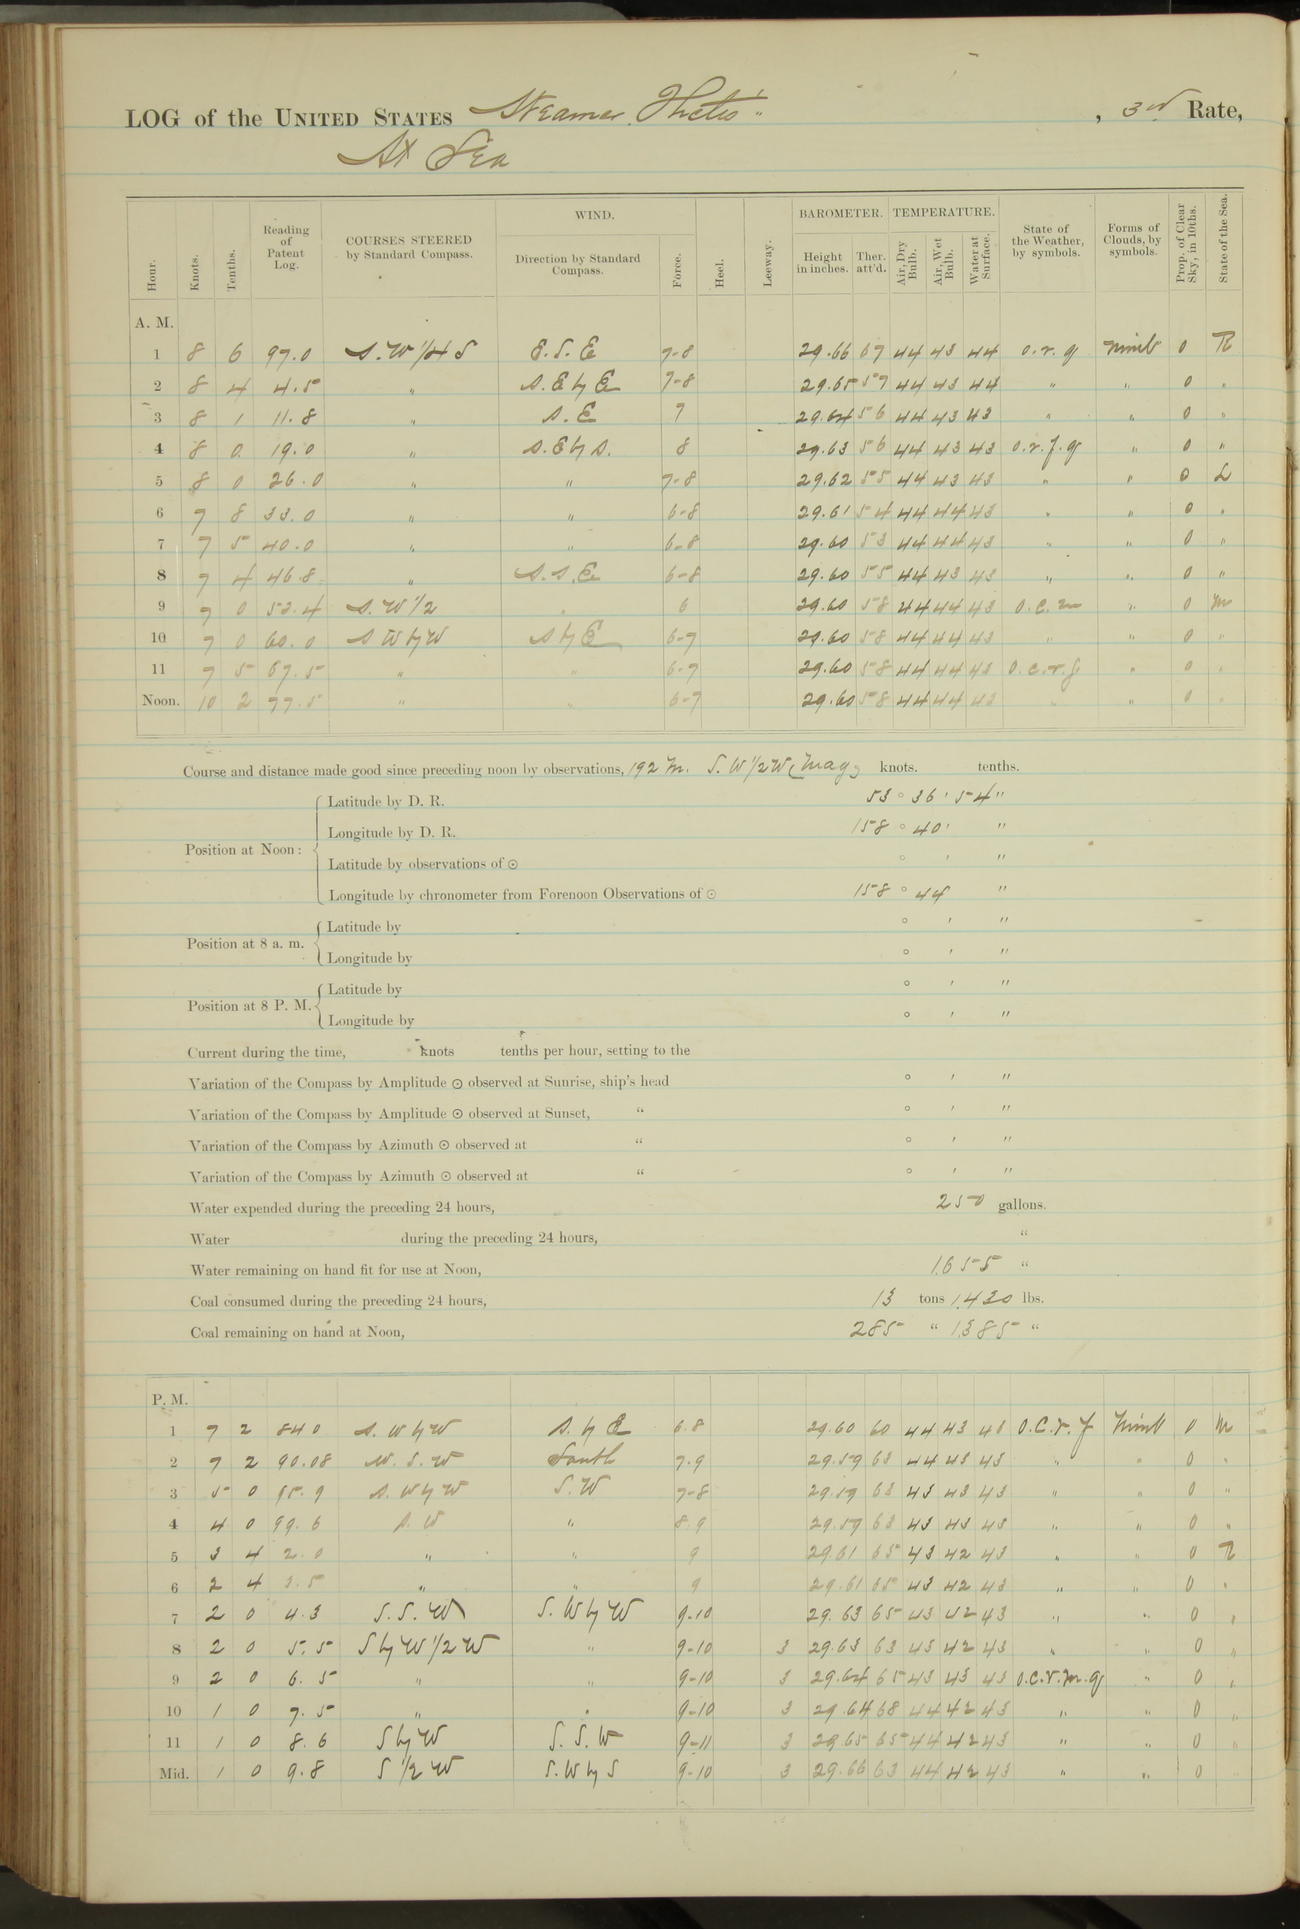 LOG of the UNITED STATES Steamer Thetis , 3rd Rate,
At Sea
Hour. Knots. Tenths. Reading of Patent Log. COURSES STEERED by Standard Compass. WIND. Direction by Standard Compass. Force. Heel. Leeway. BAROMETER. Height in inches. Ther. att'd. TEMPERATURE. Air, Dry Bulb. Air, Wet Bulb. Water at Surface. State of the Weather, by symbols. Forms of Clouds, by symbols. Prop. of Clear Sky, in 10ths. State of the Sea.
A. M.
1 8 6 97.0 S.W 1/4 S E.S.E 7-8 29.66 57 44 43 44 o.r.q Nimb 0 R
2 8 4 4.5 " S.E by E 7-8 29.65 57 44 43 44 " " 0 "
3 8 1 11.8 " S.E 7 29.64 56 44 43 43 " " 0 "
4 8 0 19.0 " S.E by S. 8 29.63 56 44 43 43 o.r.f.q " 0 "
5 8 0 26.0 " " 7-8 29.62 55 44 43 43 " " 0 L
6 7 8 33.0 " " 6-8 29.61 54 44 44 43 " " 0 "
7 7 5 40.0 " " 6-8 29.60 53 44 44 43 " " 0 "
8 7 4 46.8 " S.S.E 6-8 29.60 55 44 43 43 " " 0 "
9 7 0 53.4 S.W 1/2 " 6 29.60 58 44 44 43 o.c.m " 0 M
10 7 0 60.0 S W by W S by E 6-7 29.60 58 44 44 43 " " 0 "
11 7 5 67.5 " " 6-7 29.60 58 44 44 43 o.c.r.f " 0 "
Noon. 10 2 77.5 " " 6-7 29.60 58 44 44 43 " " 0 "
Course and distance made good since preceding noon by observations, 192 m. S.W 1/2 W (mag) knots. tenths.
Position at Noon:
Latitude by D. R. 53 ° 36 ' 54 "
Longitude by D. R. 158 ° 40 ' "
Latitude by observations of ☉ ° ' "
Longitude by chronometer from Forenoon Observations of ☉ 158 ° 44 "
Position at 8 a. m.
Latitude by ° ' "
Longitude by ° ' "
Position at 8 P. M.
Latitude by ° ' "
Longitude by ° ' "
Current during the time, knots tenths per hour, setting to the
Variation of the Compass by Amplitude ☉ observed at Sunrise, ship's head ° ' "
Variation of the Compass by Amplitude ☉ observed at Sunset, " ° ' "
Variation of the Compass by Azimuth ☉ observed at " ° ' "
Variation of the Compass by Azimuth ☉ observed at " ° ' "
Water expended during the preceding 24 hours, 250 gallons.
Water during the preceding 24 hours, "
Water remaining on hand fit for use at Noon, 1655 "
Coal consumed during the preceding 24 hours, 13 tons 1,430 lbs.
Coal remaining on hand at Noon, 285 " 1,385 "
P. M.
1 7 2 84 0 S. W by W S. by E 6.8 29.60 60 44 43 43 o.c.r.f Nimb 0 M
2 7 2 90.08 W. S. W South 7.9 29.59 63 44 43 43 " " 0 "
3 5 0 95.9 S. W by W S.W 7-8 29.59 63 43 43 43 " " 0 "
4 4 0 99.6 S. W " 8.9 29.59 63 43 43 43 " " 0 "
5 3 4 2.0 " " 9 29.61 65 43 42 43 " " 0 R
6 2 4 3.5 " " 9 29.61 65 43 42 43 " " 0 "
7 2 0 4.3 S. S. W S. W by W 9-10 29.63 65 43 42 43 " " 0 "
8 2 0 5.5 S by W 1/2 W " 9-10 3 29.63 63 43 42 43 " " 0 "
9 2 0 6.5 " " 9-10 3 29.64 65 43 43 43 o.c.r.m.q " 0 "
10 1 0 7.5 " " 9-10 3 29.64 68 44 42 43 " " 0 "
11 1 0 8.6 S by W S. S. W 9-11 3 29.65 65 44 42 43 " " 0 "
Mid. 1 0 9.8 S 1/2 W S.W by S 9-10 3 29.66 63 44 42 43 " " 0 "